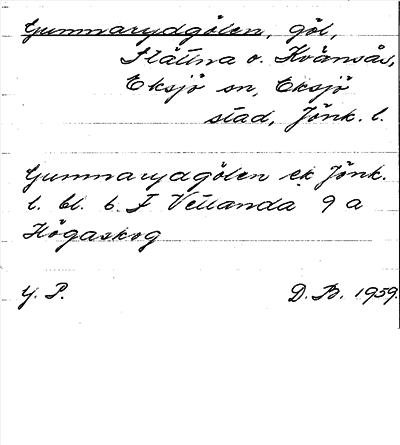 Gummarydgölen, göl,
Slätina o. Kvänsås,
Eksjö sn, Eksjö
stad, Jönk. l.
Gummarydgölen ek Jönk.
l. bl. 6. F Vetlanda 9 a
Högaskog
G. P. D. B. 1959.